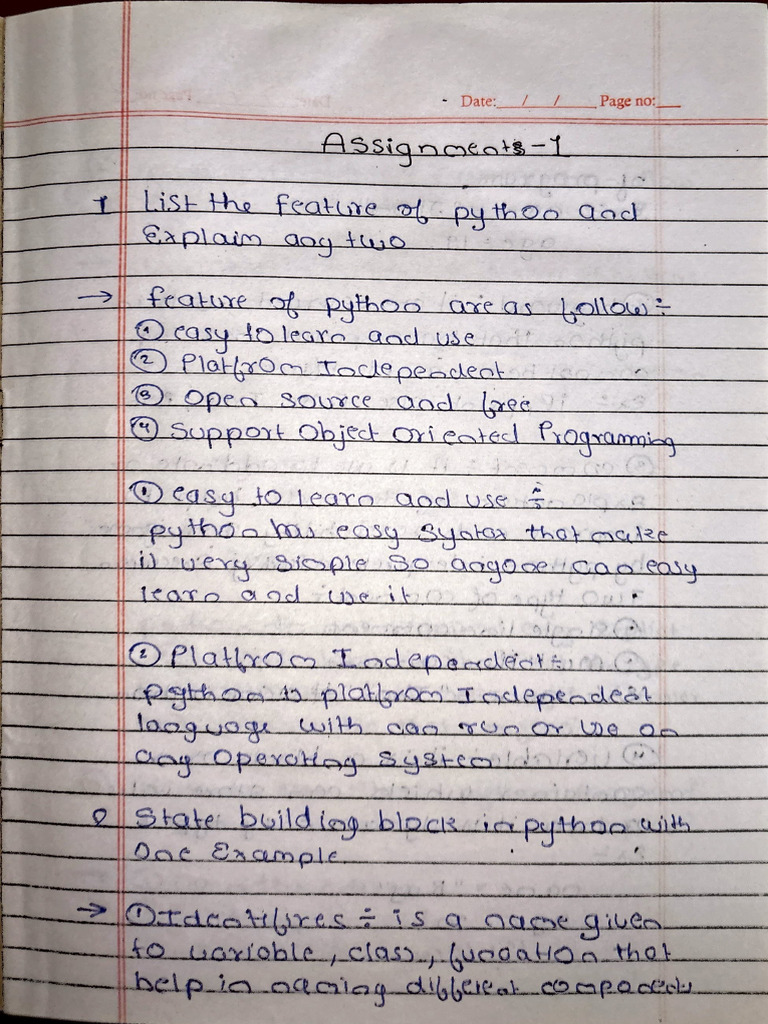 Date: / / Page no:
Assignments-1
1 List the feature of python and
Explain any two
→ feature of python are as follow :-
① easy to learn and use
② Platfrom Independent
③ open source and free
④ Support Object oriented Programming
① easy to learn and use :-
python has easy syntax that make
it very simple so anyone can easy
learn and use it
② Platfrom Independent :-
python is platfrom Independent
language with can run or use on
any operating system
2 State building block in python with
One Example
→ ① Identifires :- is a name given
to variable, class, function that
help in naming different